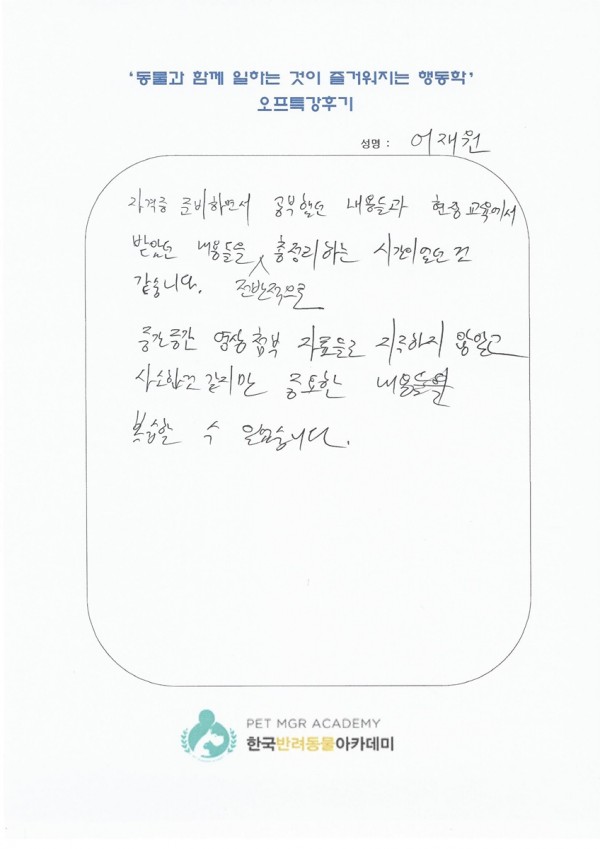 '동물과 함께 일하는 것이 즐거워지는 행동학'
오프특강후기
성명 : 어재원
자격증 준비하면서 공부했던 내용들과 현장 교육에서
받았던 내용들을 총정리하는 시간이었던 것
같습니다. 전반적으로
중간중간 영상첨부 자료들로 지루하지 않았고
사소한것 같지만 중요한 내용들을
복습할 수 있었습니다.
PET MGR ACADEMY
한국반려동물아카데미